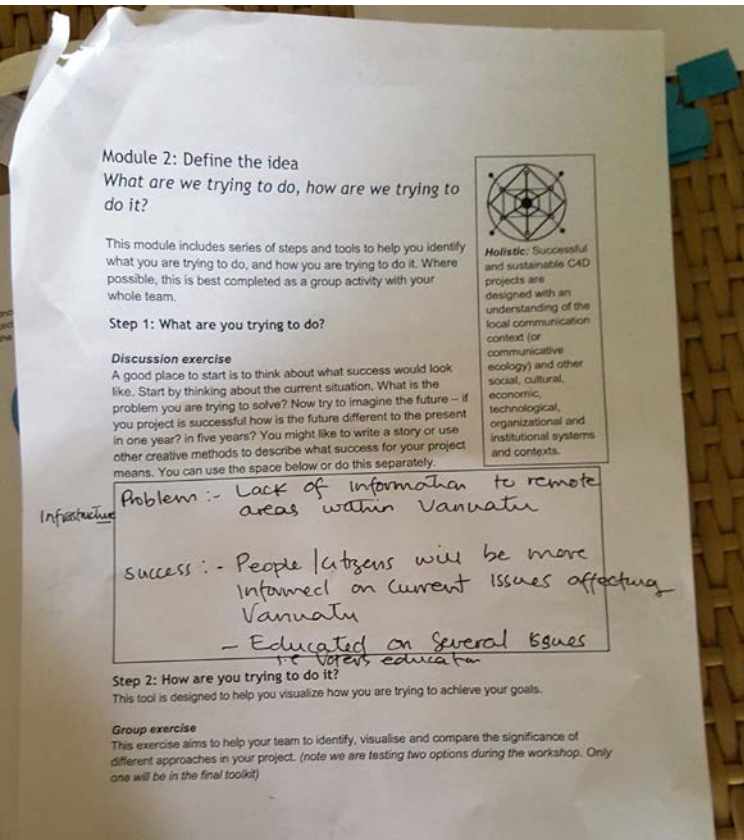 Module 2: Define the idea
What are we trying to do, how are we trying to
do it?
This module includes series of steps and tools to help you identify
what you are trying to do, and how you are trying to do it. Where
possible, this is best completed as a group activity with your
whole team.
Step 1: What are you trying to do?
Discussion exercise
A good place to start is to think about what success would look
like. Start by thinking about the current situation. What is the
problem you are trying to solve? Now try to imagine the future – if
you project is successful how is the future different to the present
in one year? in five years? You might like to write a story or use
other creative methods to describe what success for your project
means. You can use the space below or do this separately.
Holistic: Successful
and sustainable C4D
projects are
designed with an
understanding of the
local communication
context (or
communicative
ecology) and other
social, cultural,
economic,
technological,
organizational and
institutional systems
and contexts.
Infrastructure
Problem :- Lack of information to remote
areas within Vanuatu
Success : - People / Citizens will be more
Informed on Current Issues affecting
Vanuatu
- Educated on Several Issues
i.e Voters education
Step 2: How are you trying to do it?
This tool is designed to help you visualize how you are trying to achieve your goals.
Group exercise
This exercise aims to help your team to identify, visualise and compare the significance of
different approaches in your project. (note we are testing two options during the workshop. Only
one will be in the final toolkit)